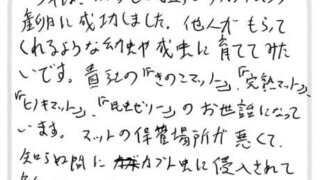 産卵に成功しました。他人がもらって
くれるような幼虫や成虫に育ててみた
いです。貴社の「きのこマット」、「完熟マット」、
「ヒノキマット」、「昆虫ゼリー」のお世話になって
います。マットの保管場所が悪くて、
知らぬ間にカブト虫に侵入されて